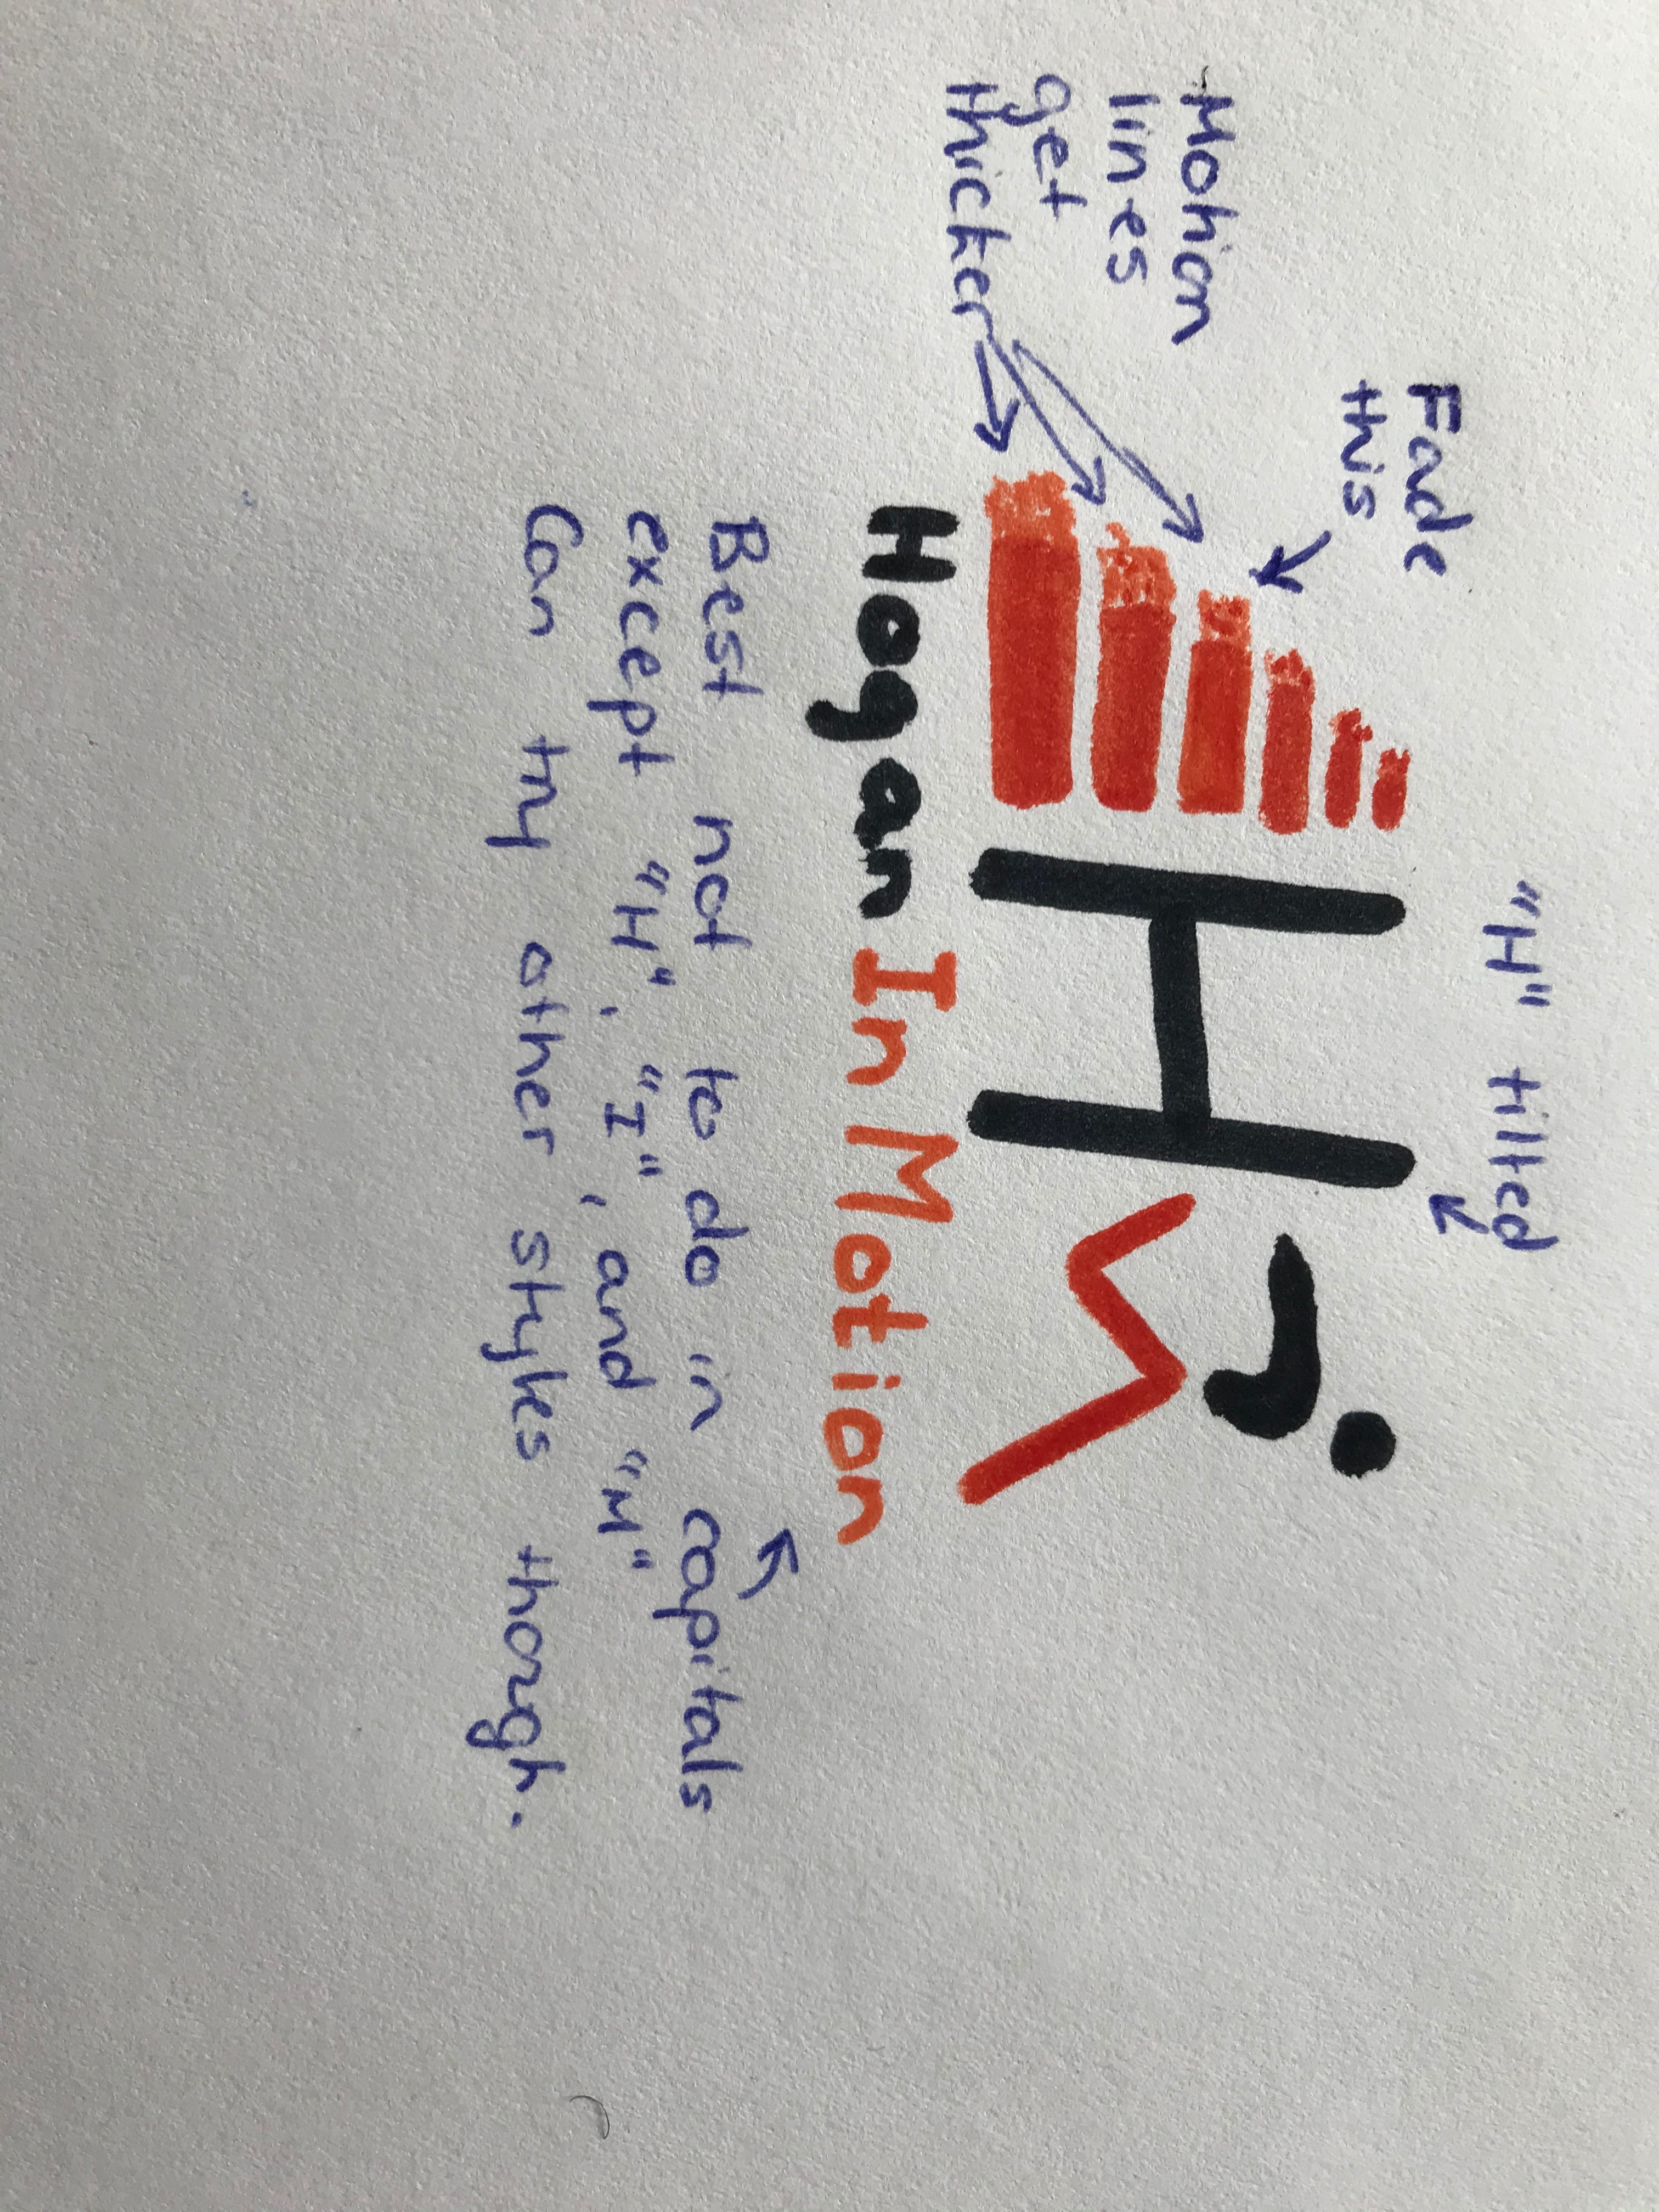 "H" tilted
Fade
this
Motion
lines
get
thicker
H
Hogan In Motion
Best not to do in capitals
except "H", "I", and "M"
Can try other styles though.